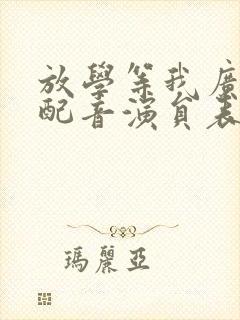 放學等我廣
配音演員表
瑪麗亞